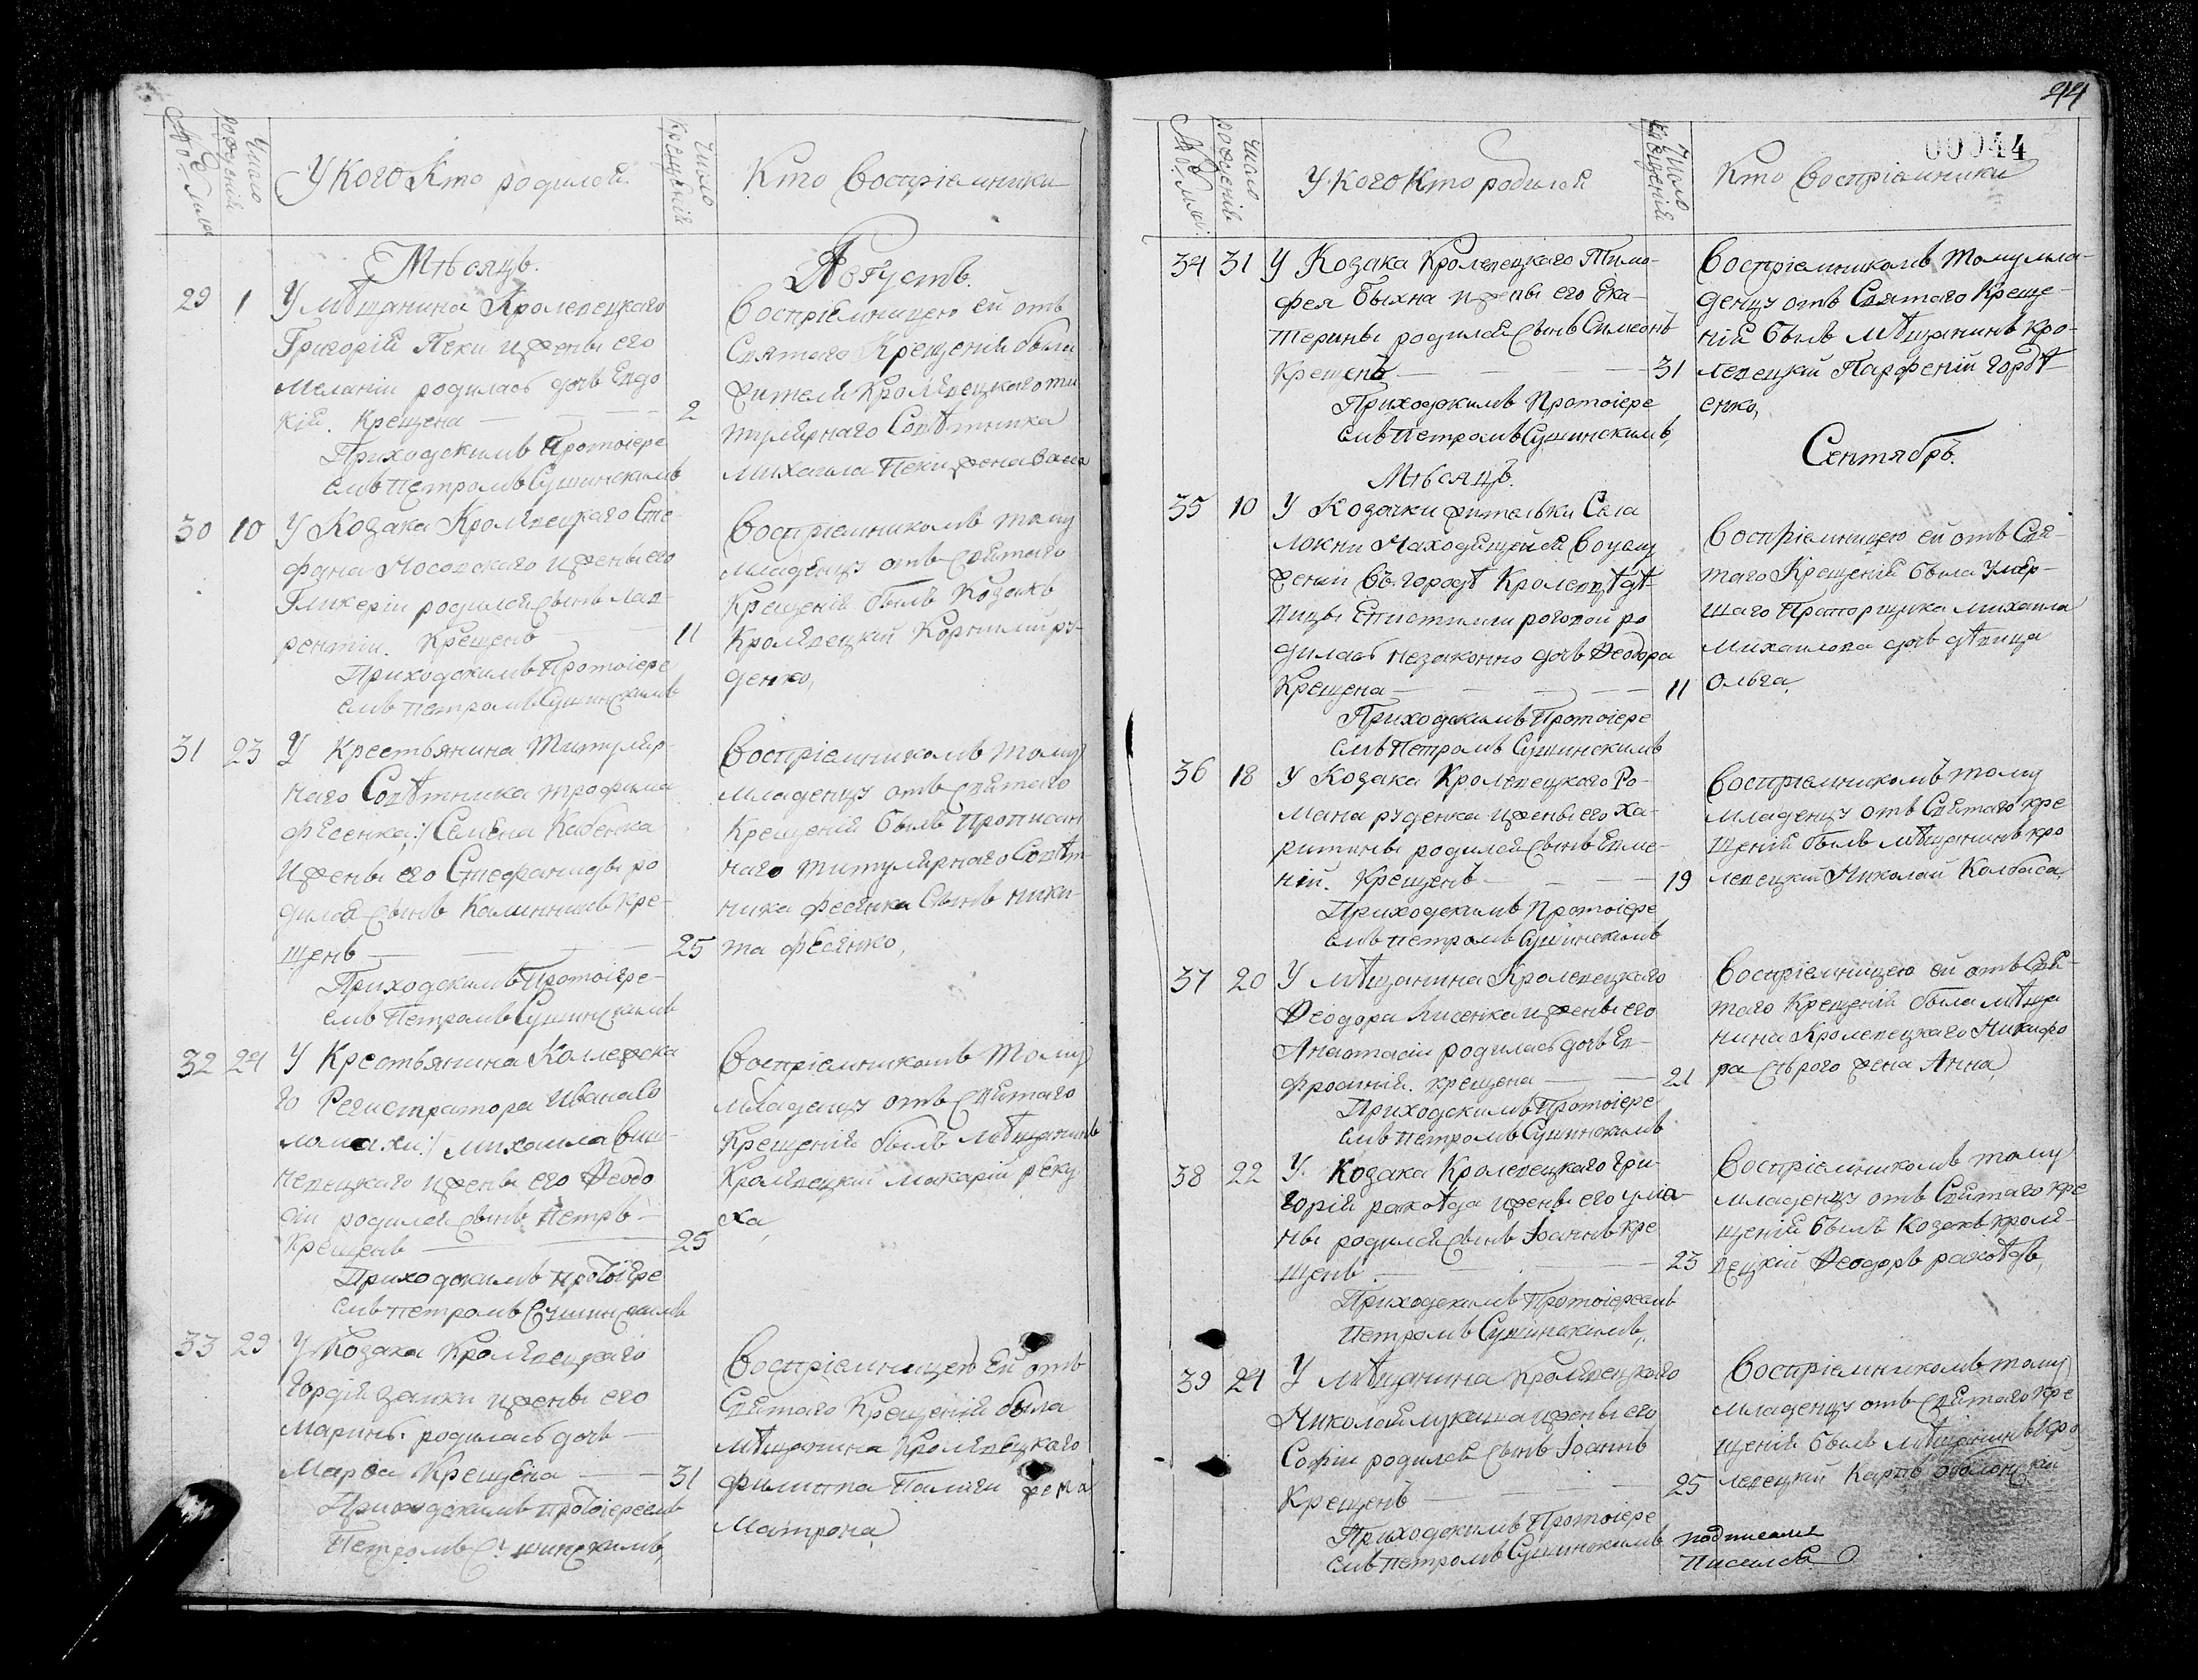 44
00044
№ Числа
Число рожденій
У Кого Кто родился
Число Крещеній
Кто Воспріемники
Мѣсяцъ.
Августъ.
29 1 У мѣщанина Кролевецкаго
Григорія Пеки и жены его
Меланіи родилась дочь Евдо
кія. Крещена 2
Приходскимъ Протоіере
емъ Петромъ Сушинскимъ
Воспріемницею ей отъ
Святаго Крещенія была
жителя Кролевецкаго ти
тулярнаго Совѣтника
Михаила Пеки жена
30 10 У Козака Кролевецкаго Сте
фана Носовскаго и жены его
Гликеріи родился сынъ Лав
рентій. Крещенъ 11
Приходскимъ Протоіере
емъ Петромъ Сушинскимъ
Воспріемникомъ тому
младенцу отъ Святаго
Крещенія былъ Козакъ
Кролевецкій Корнилій ру-
денко,
31 23 У Крестьянина Титуляр-
наго Совѣтника Трофима
фесенка :/ Семена
и жены его Стефаниды ро
дился сынъ Калинникъ Кре-
щенъ 25
Приходскимъ Протоіере-
емъ Петромъ Сушинскимъ
Воспріемникомъ тому
младенцу отъ Святаго
Крещенія былъ Прописан
наго титулярнаго Совѣт-
ника фесенка Сынъ Ники-
та фесенко,
32 24 У Крестьянина Коллежска
го Регистратора Ивана Со
ломахи :/ Михаила Виш-
невецкаго и жены его Феодо
сіи родился сынъ Петръ
Крещенъ 25
Приходскимъ протоіере
емъ Петромъ Сушинскимъ
Воспріемникомъ тому
младенцу отъ Святаго
Крещенія былъ мѣщанинъ
Кролевецкій Макарій реку
ха,
33 29 У Козака Кролевецкаго
Гордія заики и жены его
Марины родилась дочь
Марѳа Крещена 31
Приходскимъ протоіереемъ
Петромъ Сушинскимъ,
Воспріемницею Ей отъ
Святаго Крещенія была
мѣщанина Кролевецкаго
филиппа Палиги жена
Матрона,
№ Числа
Число рожденій
У Кого Кто родился
Число Крещеній
Кто Воспріемники
34 31 У Козака Кролевецкаго Тимо-
фея Быхна и жены его Ека-
терины родился сынъ Симеонъ
Крещенъ 31
Приходскимъ Протоіере
емъ Петромъ Сушинскимъ,
Воспріемникомъ тому мла-
денцу отъ Святаго Креще-
нія былъ мѣщанинъ Кро-
левецкій Парфеній Гордѣ
енко,
Мѣсяцъ.
Сентябрь.
35 10 У Козачки жительки Села
Локни Находящейся въ
женіи въ городѣ Кролевцѣ дѣ
вицы Епистиміи роговой ро
дилась незаконно дочь Феодора
Крещена 11
Приходскимъ Протоіере
емъ Петромъ Сушинскимъ
Воспріемницею ей отъ Свя-
таго Крещенія была умер-
шаго Прапорщика Михаила
Михайлова дочь дѣвица
Ольга,
36 18 У Козака Кролевецкаго Ро-
мана руденка и жены его Ха-
ритины родился сынъ Евме-
ній. Крещенъ 19
Приходскимъ Протоіере
емъ Петромъ Сушинскимъ
Воспріемникомъ тому
младенцу отъ Святаго Кре
щенія былъ мѣщанинъ Кро
левецкій Николай Колбаса,
37 20 У мѣщанина Кролевецкаго
Феодора Лисенка и жены его
Анастасіи родилась дочь Ев-
фросинія. крещена 21
Приходскимъ Протоіере
емъ Петромъ Сушинскимъ
Воспріемницею ей отъ Свя-
таго Крещенія была мѣща
нина Кролевецкаго Никифо
ра Сѣрого жена Анна,
38 22 У Козака Кролевецкаго Гри-
горія ракоѣда и жены его улiа-
ны родился сынъ Іоаннъ кре
щенъ 23
Приходскимъ Протоіереемъ
Петромъ Сушинскимъ,
Воспріемникомъ тому
младенцу отъ Святаго кре
щенія былъ Козакъ кроле-
вецкій Феодоръ ракоѣдъ,
39 24 У мѣщанина Кролевецкаго
Николая лукаша и жены его
Софіи родился сынъ Іоаннъ
Крещенъ 25
Приходскимъ Протоіере
емъ Петромъ Сушинскимъ
Воспріемникомъ тому
младенцу отъ Святаго кре
щенія былъ мѣщанинъ кро
левецкій Карпъ оболонскій